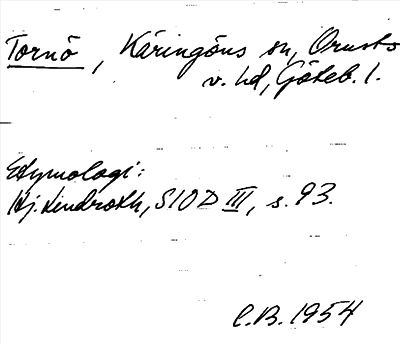 Tornö, Käringöns sn, Orusts
v. hd, Göteb. l.
Etymologi:
Hj. Lindroth, SIOD III, s. 93.
C.B. 1954